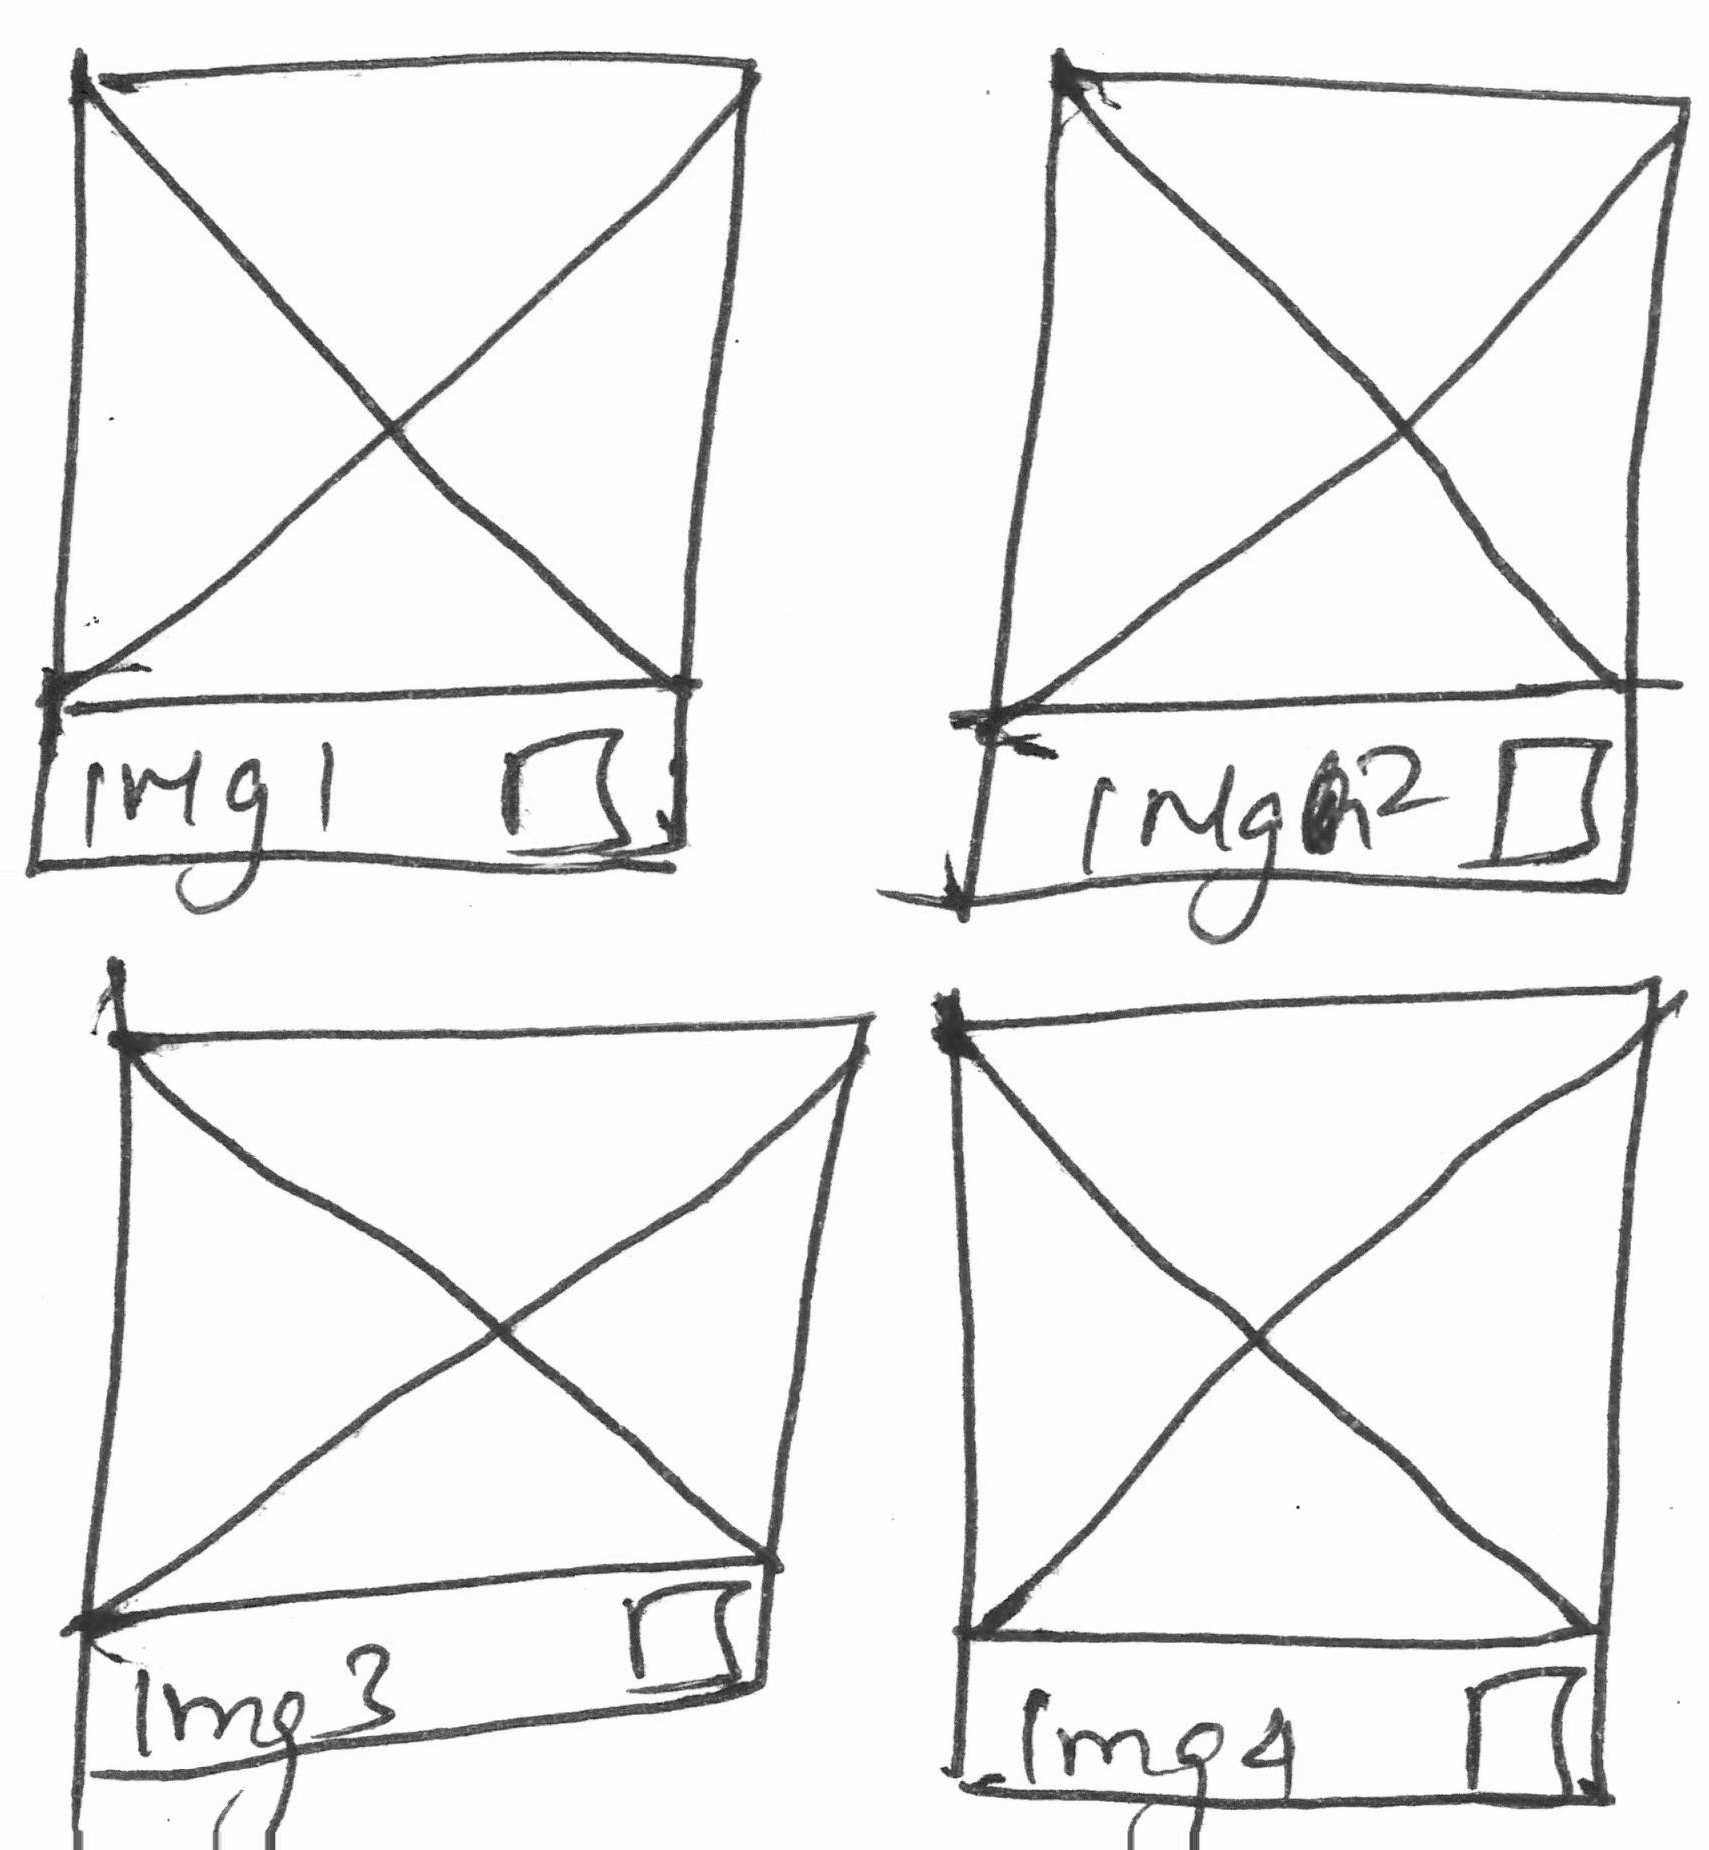 IMg1
IMg2
Img3
Img4